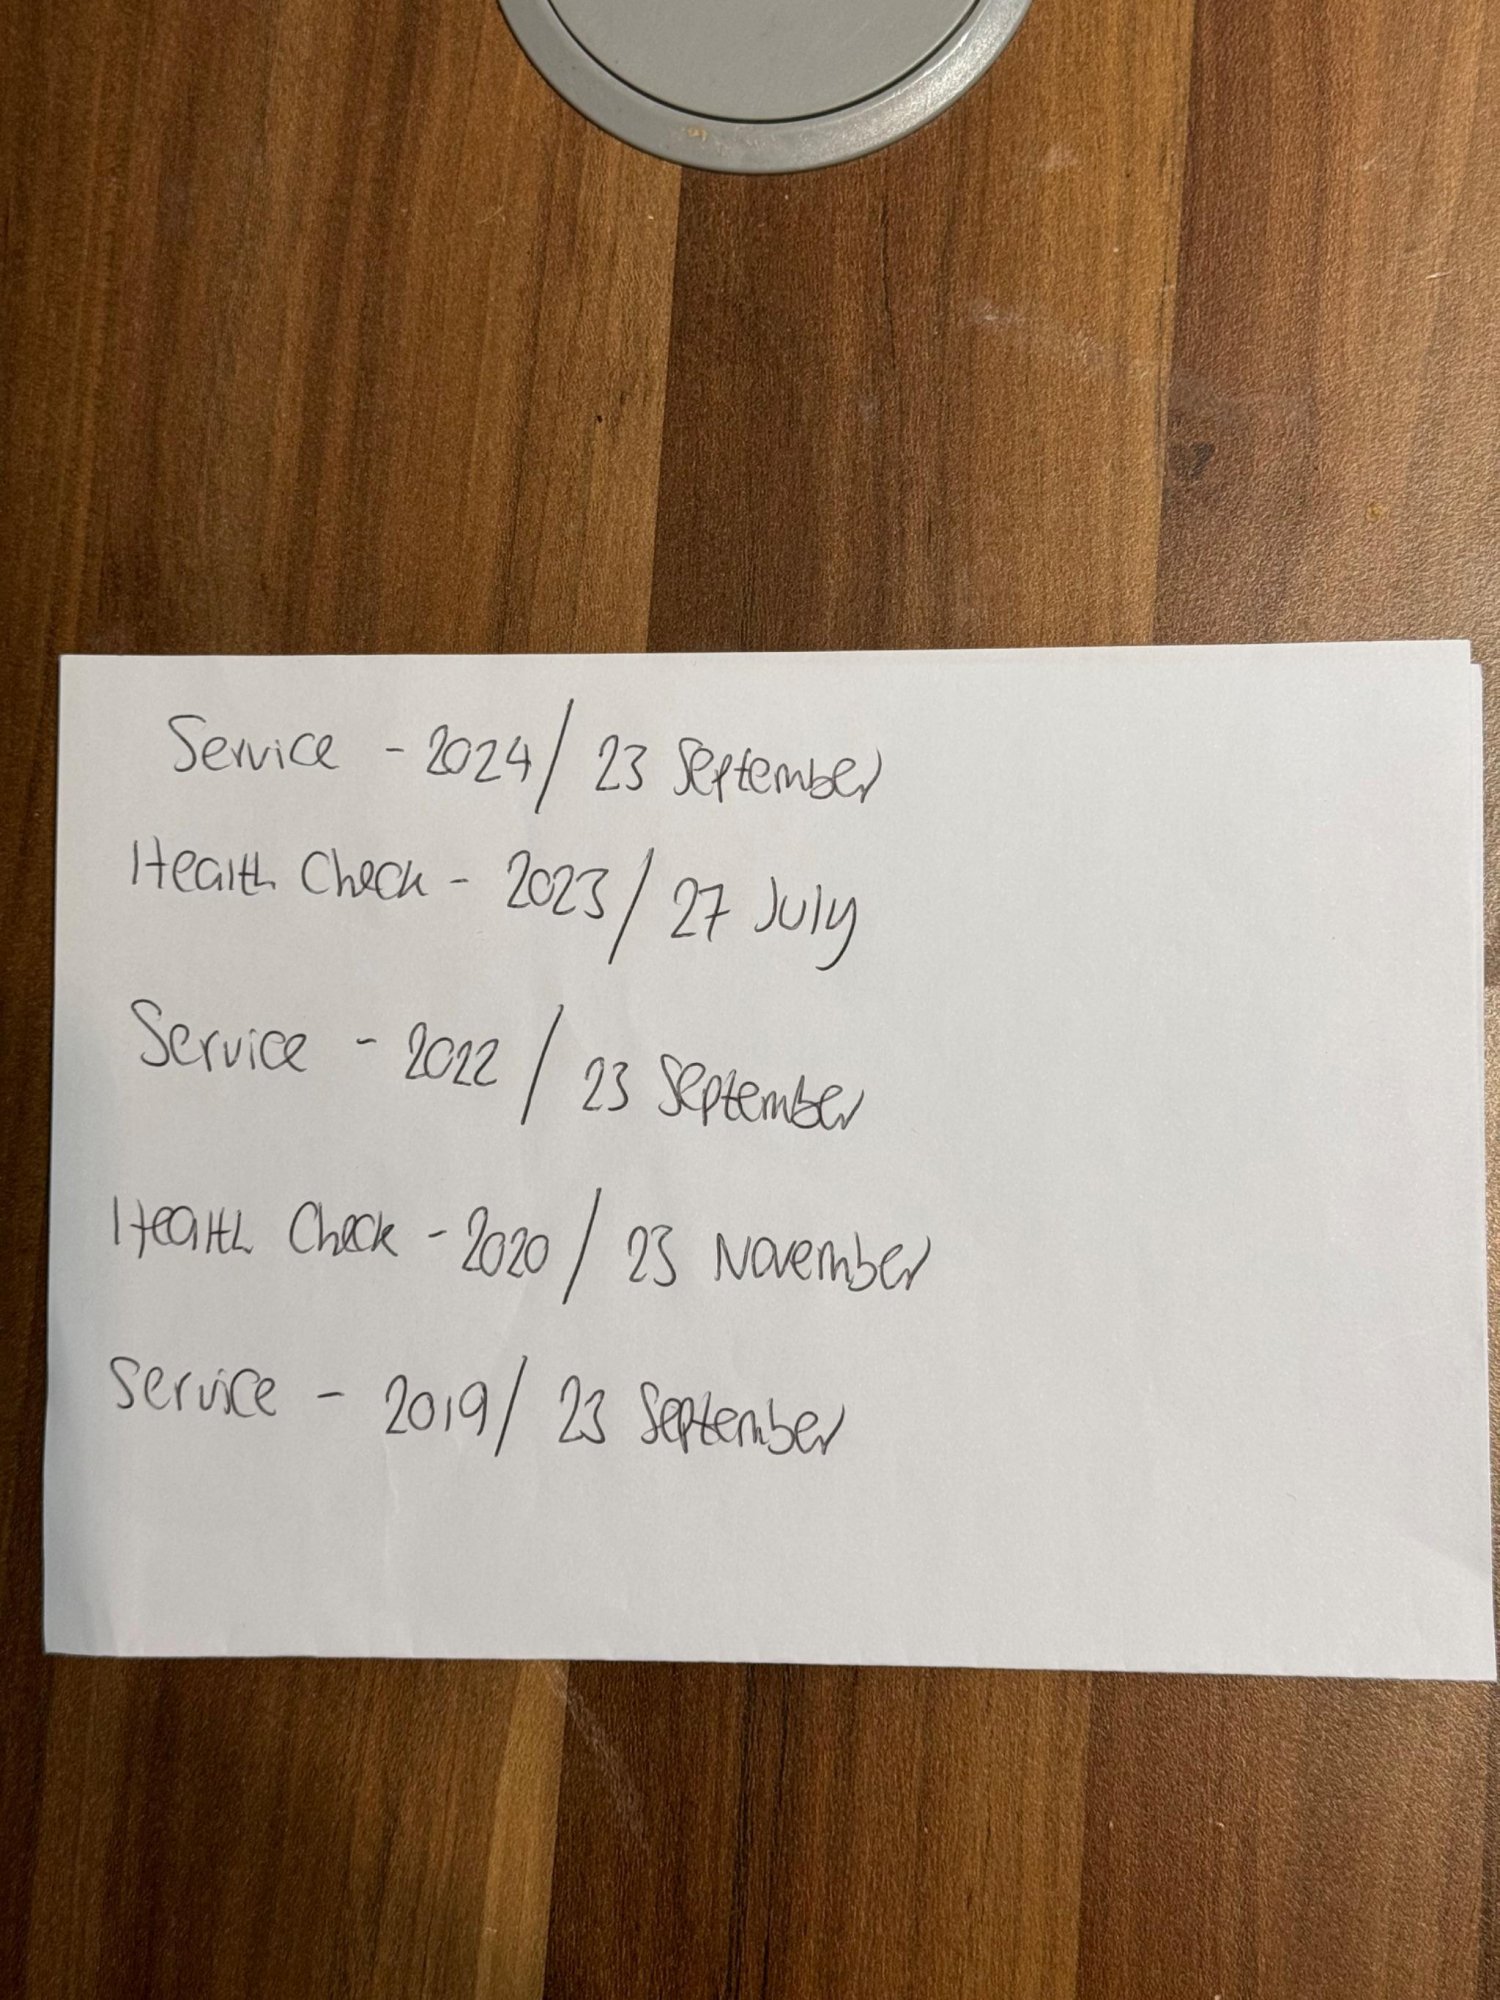 Service - 2024/ 23 September
Health Check - 2023/ 27 July
Service - 2022/ 23 September
Health Check - 2020/ 23 November
Service - 2019/ 23 September